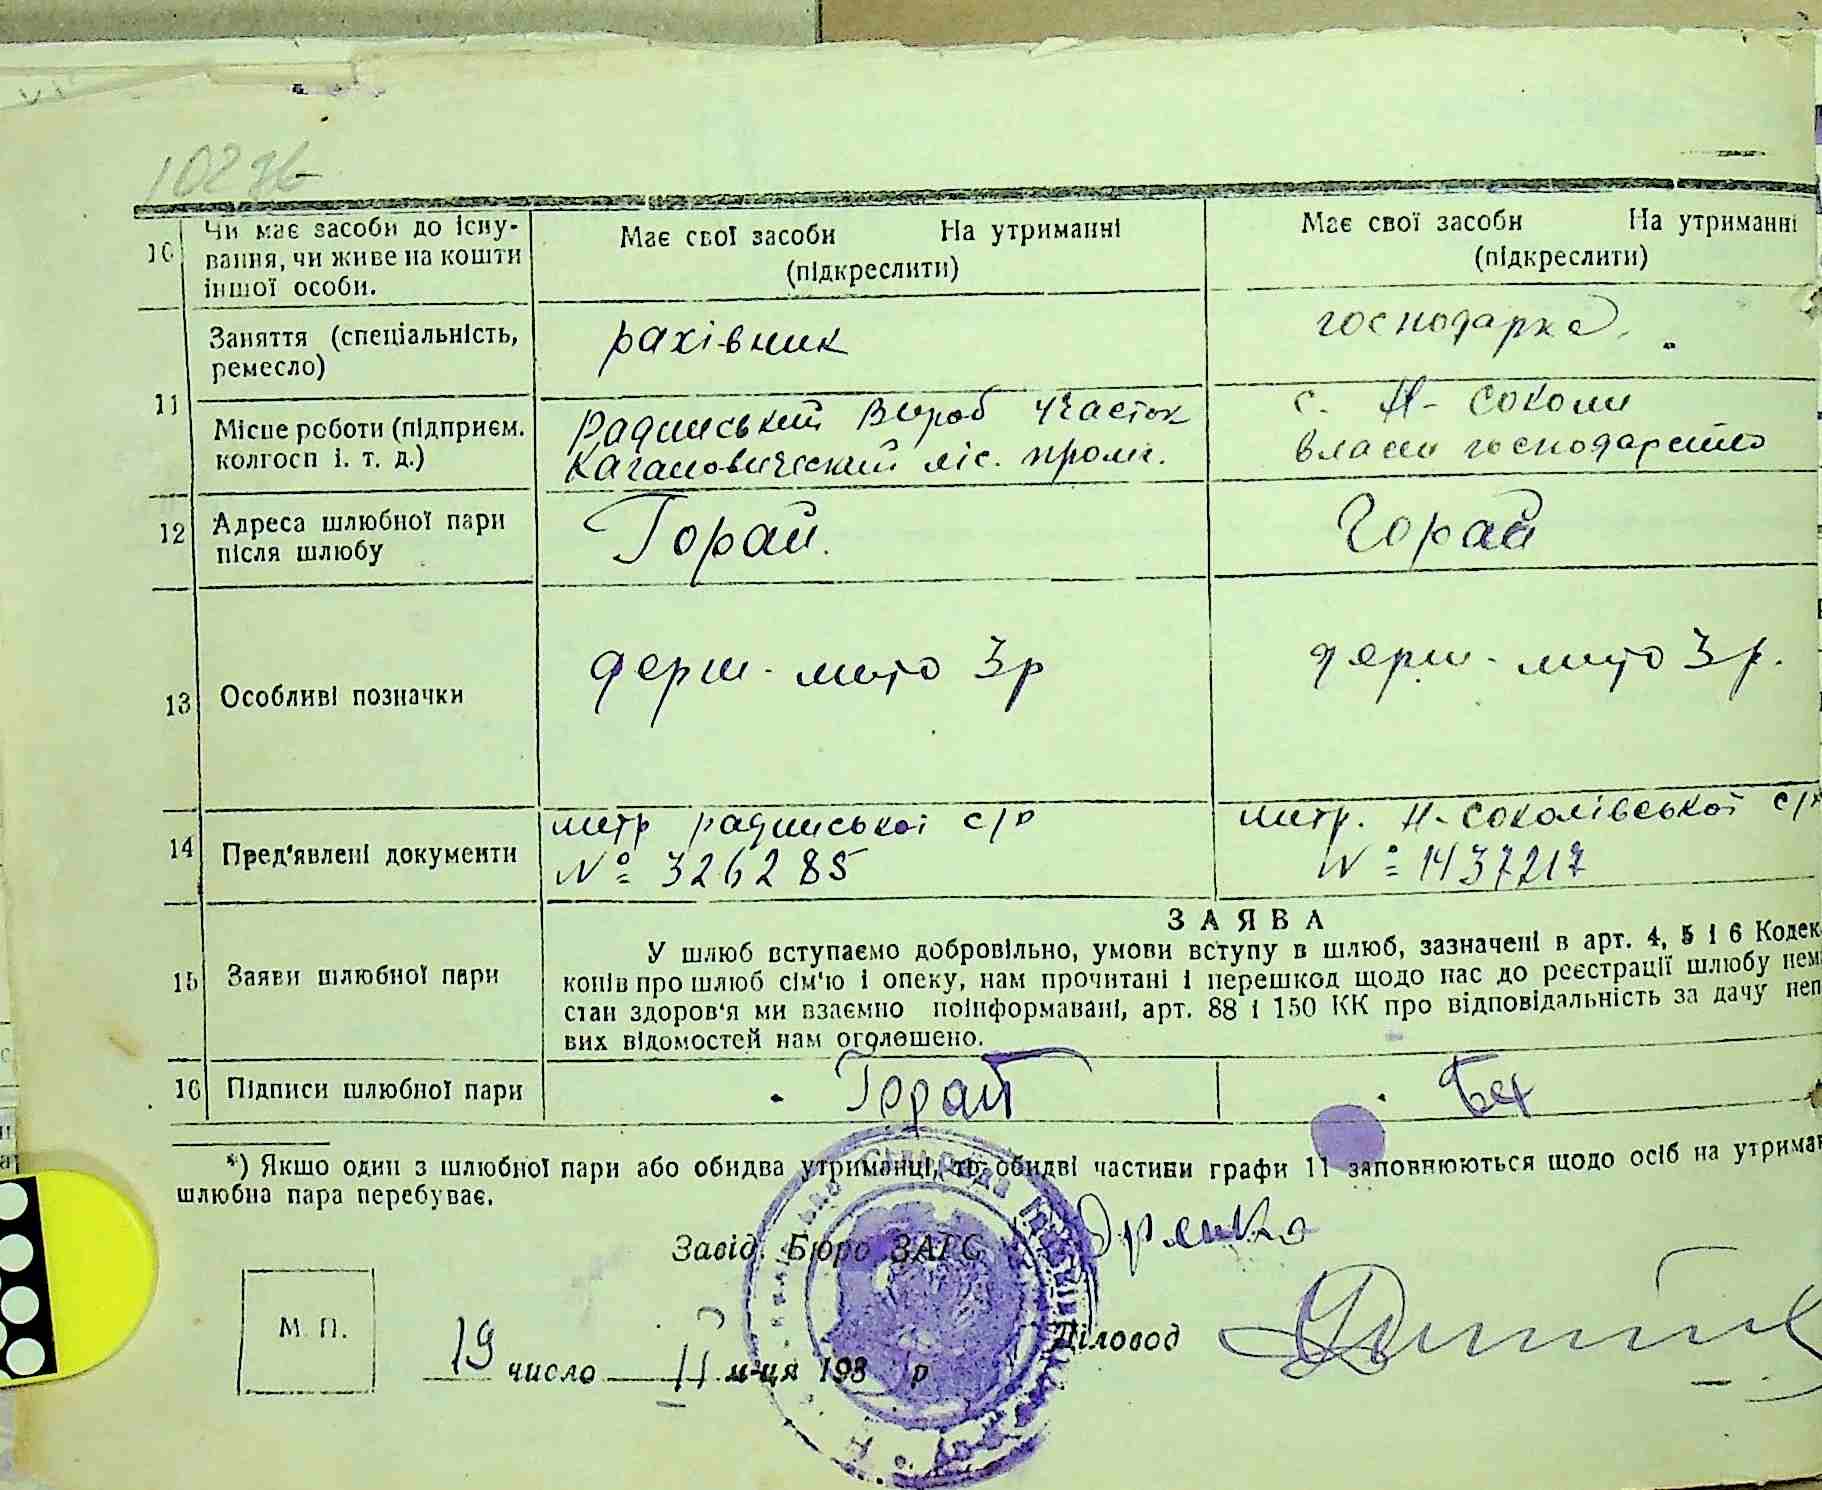 10276
10 Чи має засоби до існу-
вання, чи живе на кошти
іншої особи.
Має свої засоби На утриманні
(підкреслити)
Має свої засоби На утриманні
(підкреслити)
11 Заняття (спеціальність,
ремесло)
рахівник
господарка
Місце роботи (підприєм.
колгосп і. т. д.)
Радинський Вироб участок
Кагановический ліс. пром.
с. Н-Соколи
власн господарство
12 Адреса шлюбної пари
після шлюбу
Горай
Горай
13 Особливі позначки
держ-мито 3р
держ-мито 3р.
14 Пред'явлені документи
метр радинської с/р
№ 326285
метр. Н-Соколівської с/р
№ 1437217
15 Заяви шлюбної пари
ЗАЯВА
У шлюб вступаємо добровільно, умови вступу в шлюб, зазначені в арт. 4, 5 і 6 Кодек
конів про шлюб сім'ю і опеку, нам прочитані і перешкод щодо нас до реєстрації шлюбу нема
стан здоров'я ми взаємно поінформавані, арт. 88 і 150 КК про відповідальність за дачу неп
вих відомостей нам оголошено.
16 Підписи шлюбної пари
Горай
Бех
*) Якщо один з шлюбної пари або обидва утриманці, то обидві частини графи 11 заповнюються щодо осіб на утриман
шлюбна пара перебуває.
Завід. Бюро ЗАГС
М. П.
Діловод
19 число II м-ця 193 р